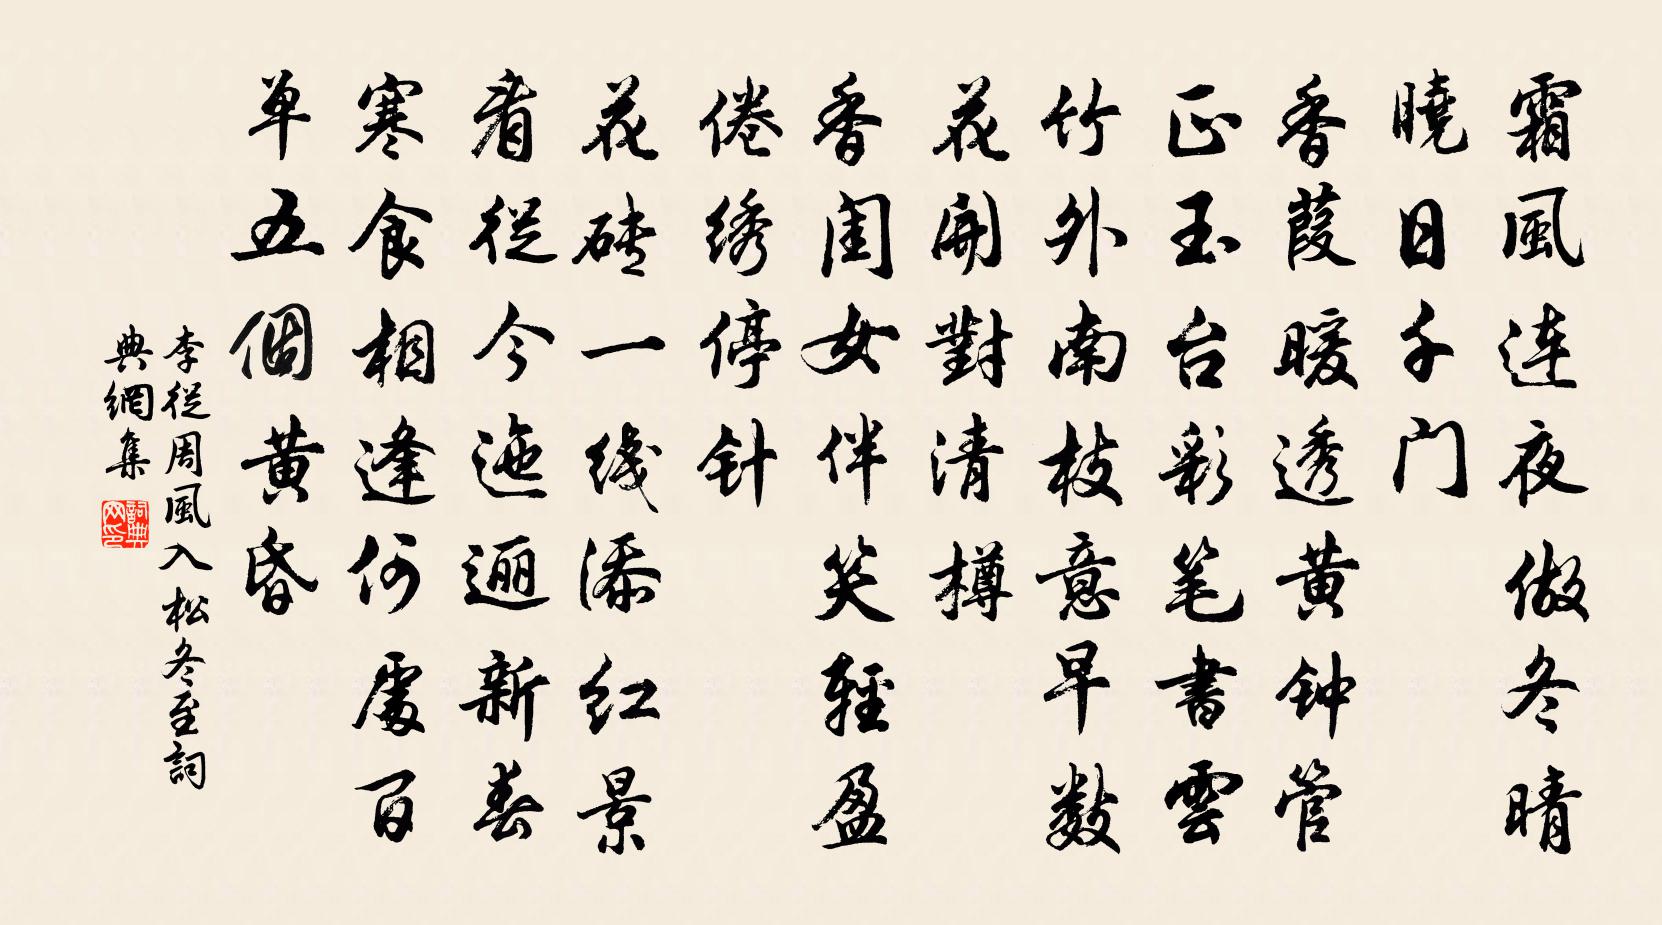 霜風连夜做冬晴
曉日千门
香葭暖透黄钟管
正玉台彩笔書雲
竹外南枝意早数
花開對清樽
香闺女伴笑輕盈
倦绣停针
花砖一线添红景
看從今迤逦新春
寒食相逢何處百
单五個黄昏
李從周風入松冬至詞
典網集
詞典网印